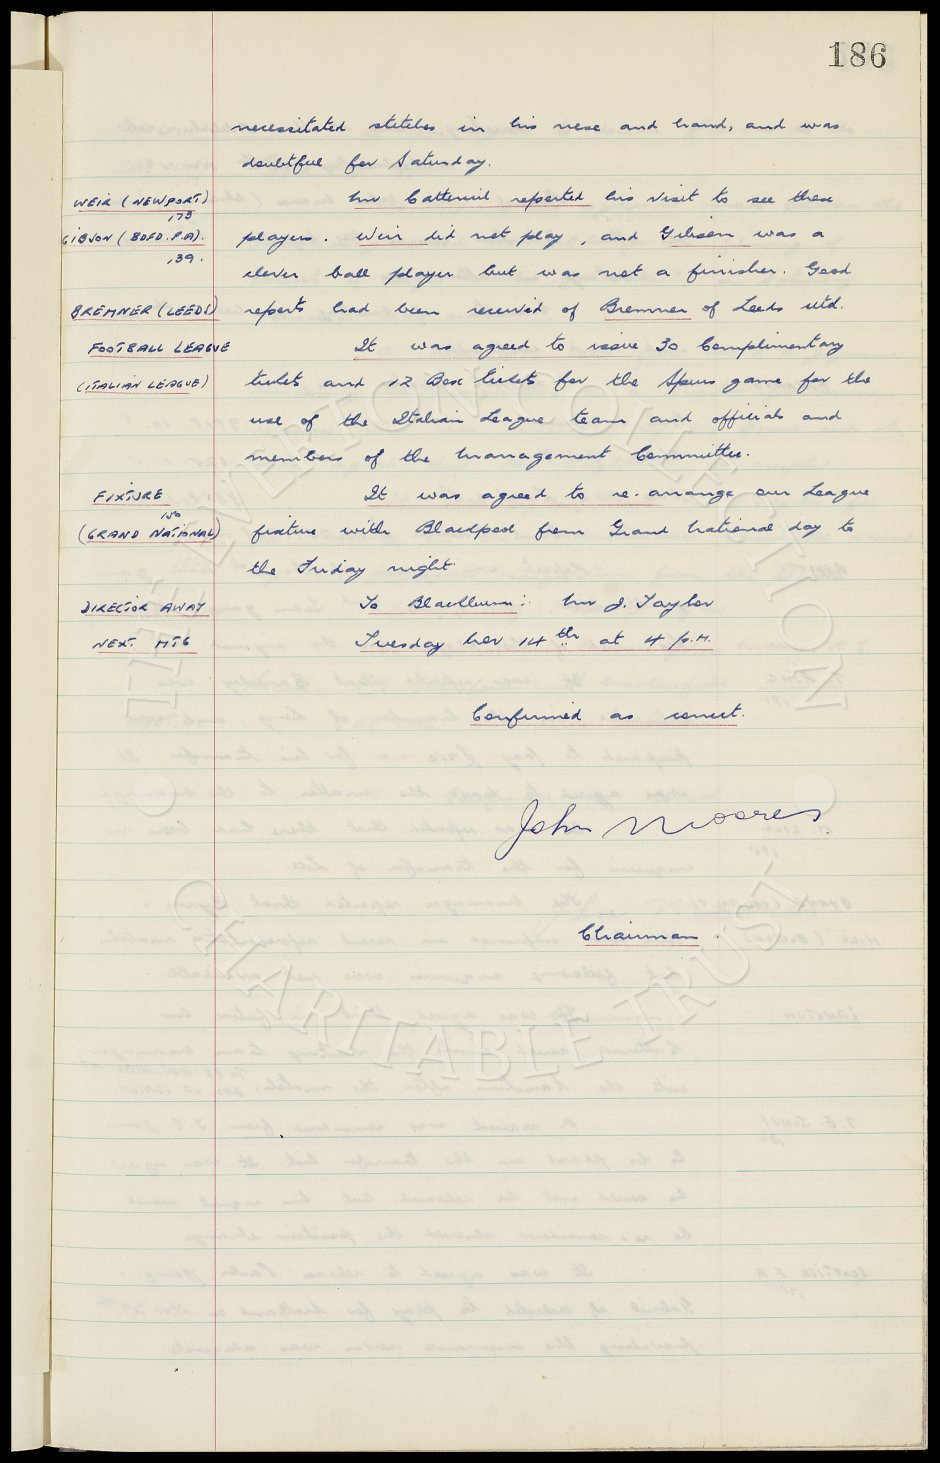 186
necessitated stitches in his nose and hand, and was
doubtful for Saturday.
WEIR (NEWPORT) Mr Catterick reported his visit to see these
178
GIBSON (BDFD. P.A). players. Weir did not play, and Gibson was a
139.
clever ball player but was not a finisher. Good
BREMNER (LEEDS) reports had been received of Bremner of Leeds Utd.
FOOTBALL LEAGUE It was agreed to issue 30 Complimentary
(ITALIAN LEAGUE) tickets and 12 Box tickets for the Spurs game for the
use of the Italian League team and officials and
members of the Management Committee.
FIXTURE It was agreed to re-arrange our League
150
(GRAND NATIONAL) fixture with Blackpool from Grand National day to
the Friday night.
DIRECTOR AWAY To Blackburn: Mr J. Taylor
NEXT MTG Tuesday Nov 14th at 4 p.m.
Confirmed as correct.
John Moores
Chairman.
THE EVERTON COLLECTION
CHARITABLE TRUST